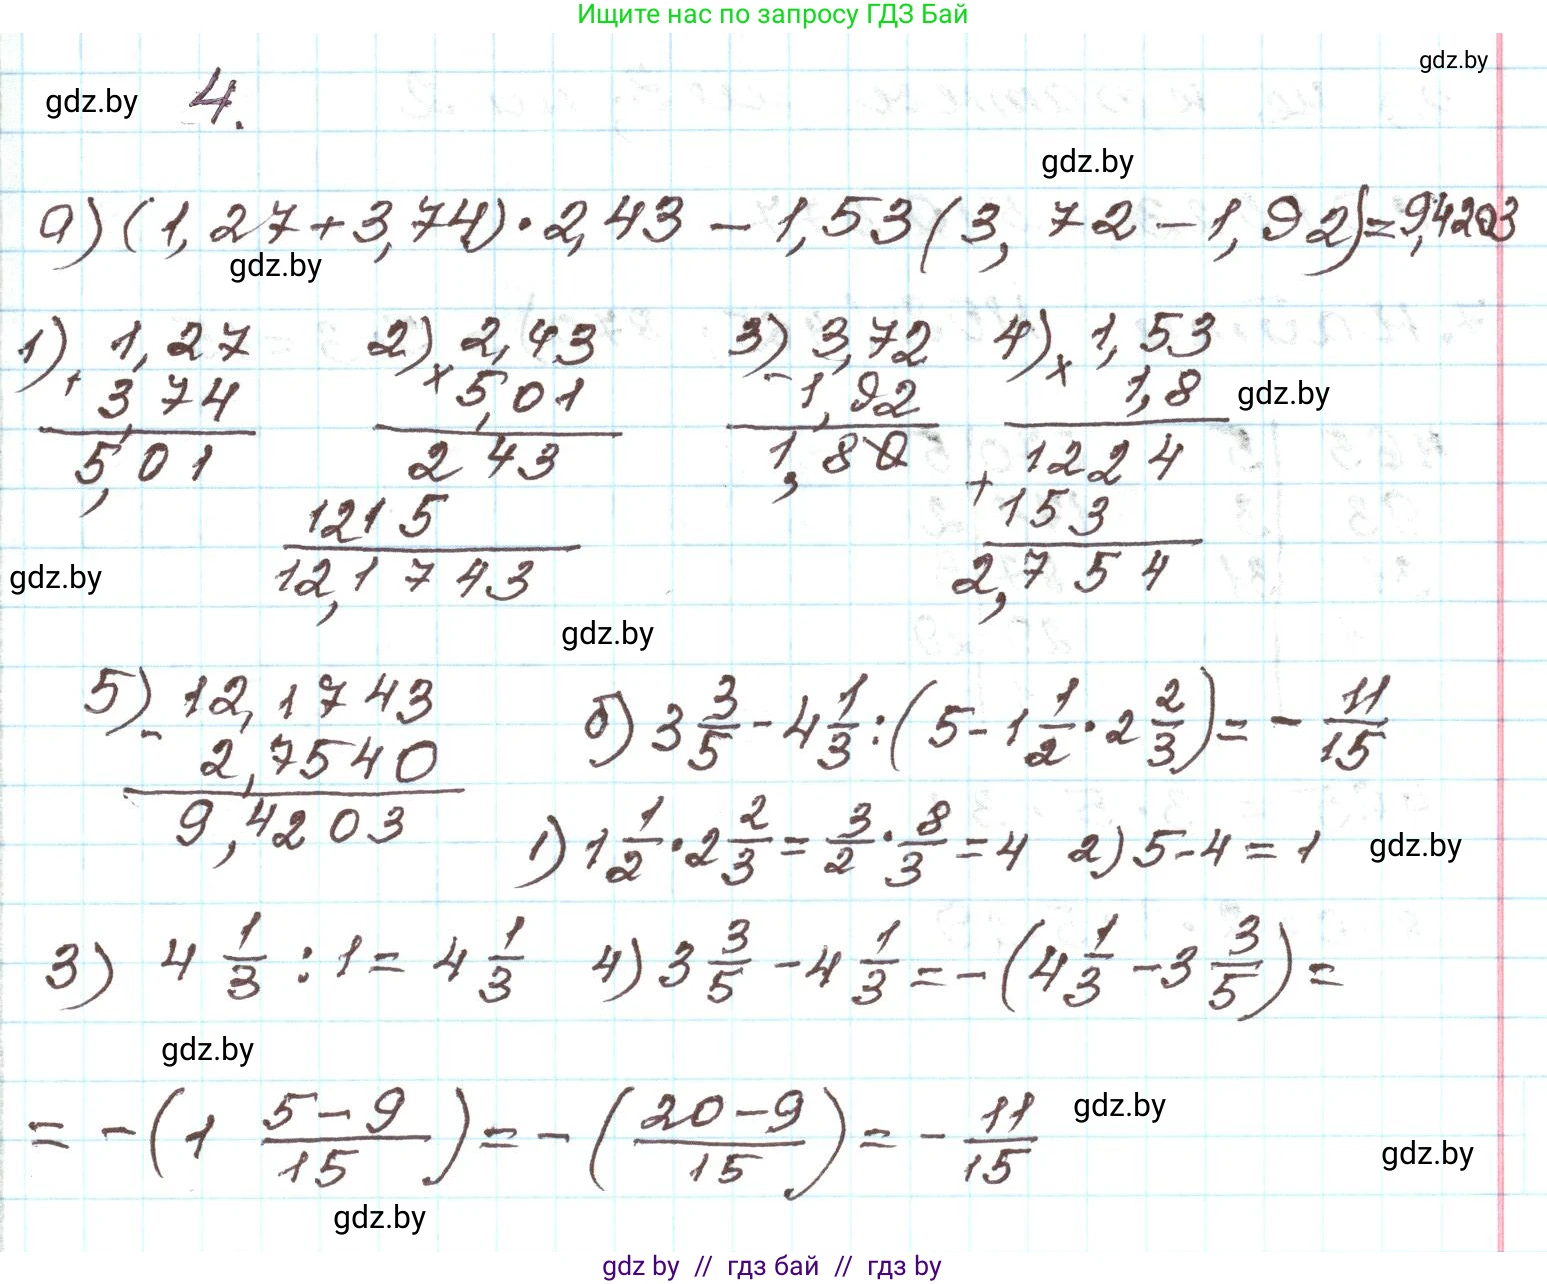 Ищите нас по запросу ГДЗ Бай
gdz.by
gdz.by 4.
gdz.by
а) (1,27+3,74)·2,43 - 1,53(3,72-1,92)=9,4203
gdz.by
1) 1,27 2) 2,43 3) 3,72 4) 1,53
+ 3,74 × 5,01 - 1,92 × 1,8 gdz.by
5,01 243 1,80 1224
1215 + 153
gdz.by 12,1743 2,754
gdz.by
5) 12,1743 б) 3 3/5 - 4 1/3 : (5 - 1 1/2 · 2 2/3) = - 11/15
- 2,7540
9,4203 1) 1 1/2 · 2 2/3 = 3/2 · 8/3 = 4 2) 5-4=1 gdz.by
3) 4 1/3 : 1 = 4 1/3 4) 3 3/5 - 4 1/3 = -(4 1/3 - 3 3/5) =
gdz.by
= -(1 5-9/15) = -(20-9/15) = - 11/15 gdz.by
gdz.by
gdz.by
gdz by // гдз бай // гдз by